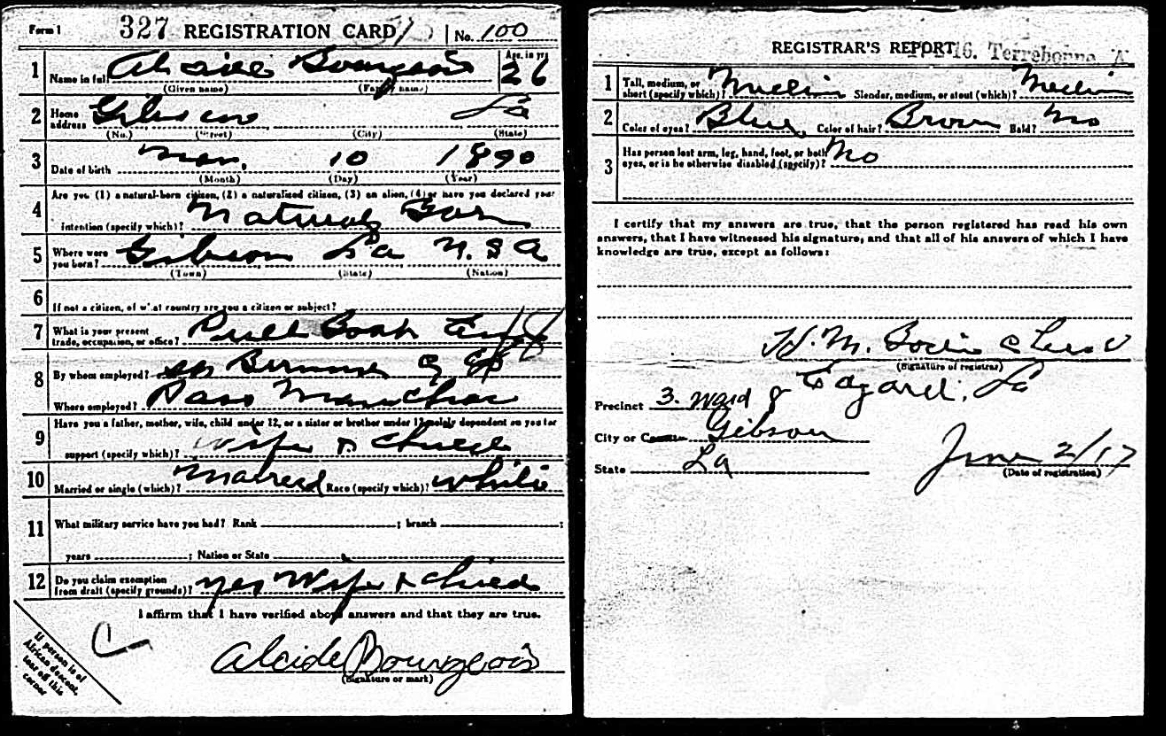 Form 1 327 REGISTRATION CARD No. 100
1 Name in full Alcide Bourgeois Age, in yrs 26
(Given name) (Family name)
2 Home address Gibson La
(No.) (Street) (City) (State)
3 Date of birth Mar. 10 1890
(Month) (Day) (Year)
4 Are you (1) a natural-born citizen, (2) a naturalized citizen, (3) an alien, (4) or have you declared your
intention (specify which)? Natural Born
5 Where were you born? Gibson La U.S.A
(Town) (State) (Nation)
6 If not a citizen, of what country are you a citizen or subject?
7 What is your present trade, occupation, or office? Pull Boat
8 By whom employed?
Where employed? Pass Manchac
9 Have you a father, mother, wife, child under 12, or a sister or brother under 12, solely dependent on you for
support (specify which)? Wife & Child
10 Married or single (which)? Married Race (specify which)? White
11 What military service have you had? Rank ; branch ;
years ; Nation or State
12 Do you claim exemption from draft (specify grounds)? Yes Wife & Child
I affirm that I have verified above answers and that they are true.
Alcide Bourgeois
(Signature or mark)
If person is of
African descent,
tear off this
corner
REGISTRAR'S REPORT 16. Terrebonne A
1 Tall, medium, or short (specify which)? Medium Slender, medium, or stout (which)? Medium
2 Color of eyes? Blue Color of hair? Brown Bald? No
3 Has person lost arm, leg, hand, foot, or both
eyes, or is he otherwise disabled (specify)? No
I certify that my answers are true, that the person registered has read his own
answers, that I have witnessed his signature, and that all of his answers of which I have
knowledge are true, except as follows:
H. M.
(Signature of registrar)
Edgard, La
Precinct 3. Ward
City or County Gibson
State La
June 2/17
(Date of registration)